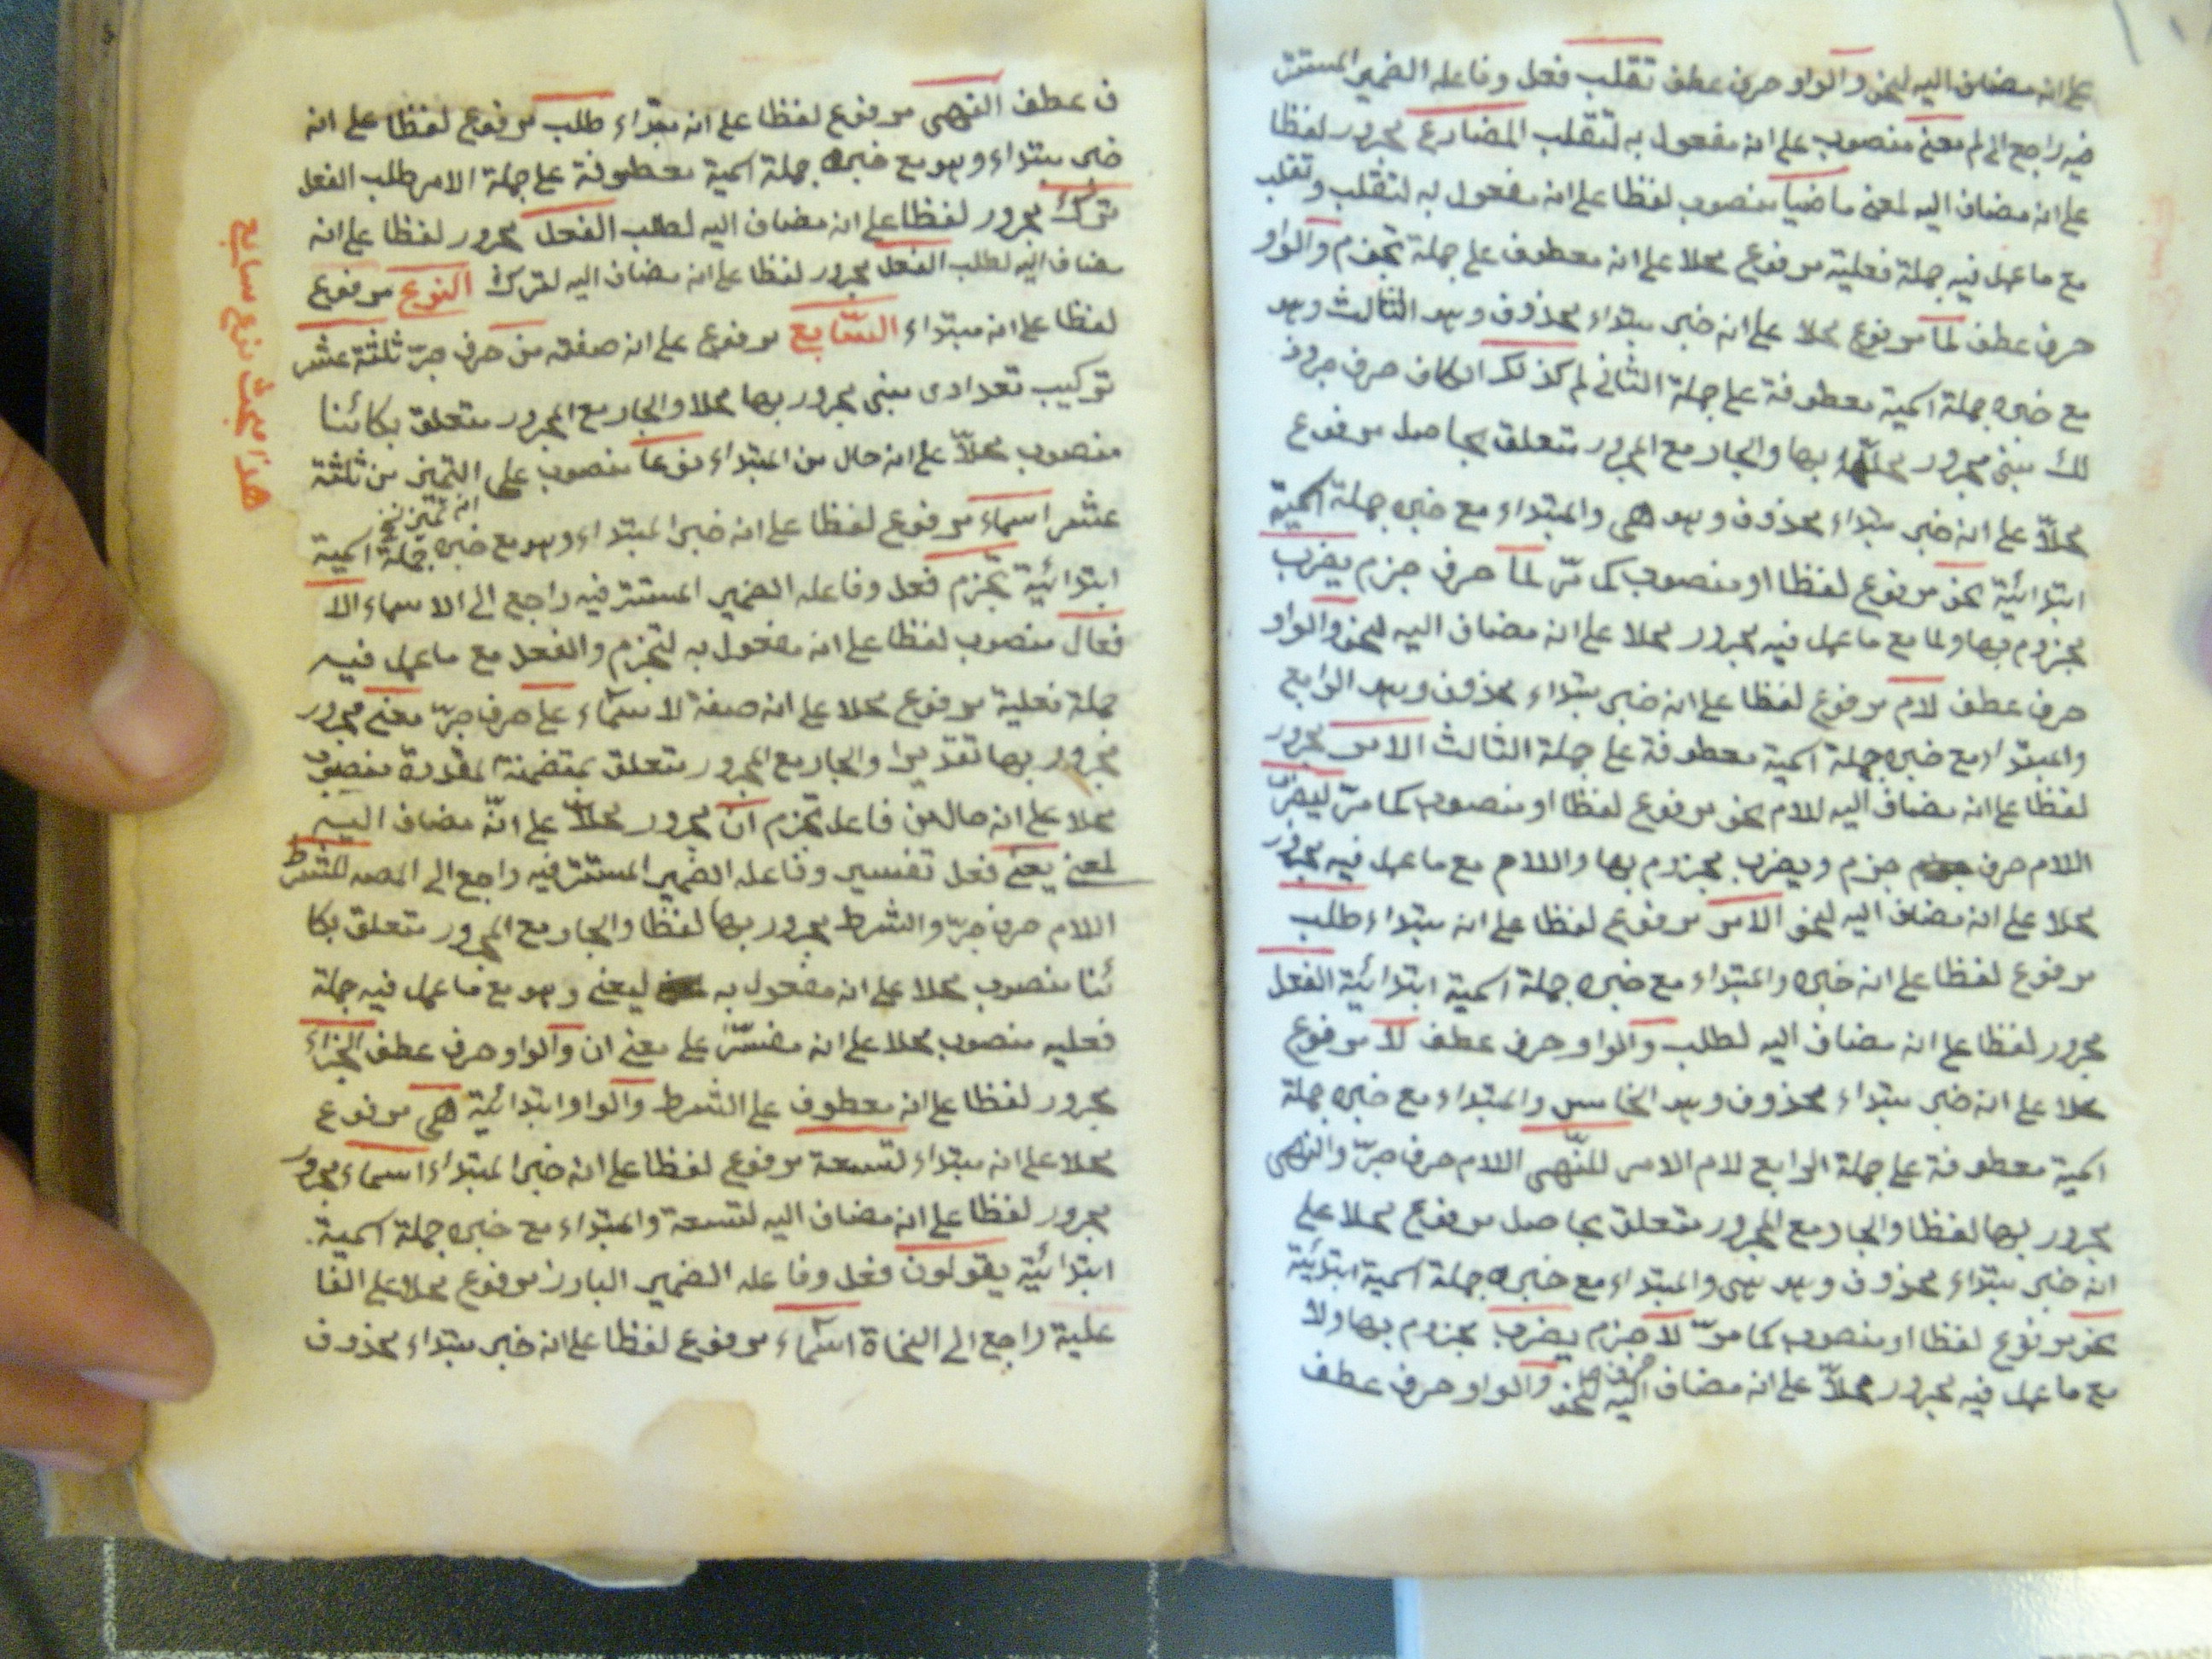 على انه مضاف اليه لنحو والواو حرف عطف تقلب فعل وفاعله الضمير المستتر
فيه راجع الى لم معنى منصوب على انه مفعول به لتقلب المضارع مجرور لفظا
على انه مضاف اليه لمعنى ماضيا منصوب لفظا على انه مفعول به لتقلب وتقلب
مع ما عمل فيه جملة فعلية مرفوع محلا على انه معطوف على جملة تجزم والواو
حرف عطف لما مرفوع محلا على انه خبر مبتداء محذوف وهو الثالث وهو
مع خبره جملة اسمية معطوفة على جملة الثانى لم كذلك الكاف حرف جر وذ
لك مبنى مجرور محلا بها والجار مع المجرور متعلق بحاصل مرفوع
محلاّ على انه خبر مبتداء محذوف وهو هى والمبتداء مع خبره جملة اسمية
ابتدائية نحو مرفوع لفظا او منصوب كما مرّ لما حرف جزم يضرب
مجزوم بها ولما مع ما عمل فيه مجرور محلا على انه مضاف اليه لنحو والواو
حرف عطف لام مرفوع لفظا على انه خبر مبتداء محذوف وهو الرابع
والمبتداء مع خبره جملة اسمية معطوفة على جملة الثالث الامر مجرور
لفظا على انه مضاف اليه للام نحو مرفوع لفظا او منصوب كما مرّ ليضرب
اللام حرف جزم ويضرب مجزوم بها واللام مع ما عمل فيه مجرور
محلا على انه مضاف اليه لنحو الامر مرفوع لفظا على انه مبتداء طلب
مرفوع لفظا على انه خبره والمبتداء مع خبره جملة اسمية ابتدائية الفعل
مجرور لفظا على انه مضاف اليه لطلب والواو حرف عطف لا مرفوع
محلا على انه خبر مبتداء محذوف وهو الخامس والمبتداء مع خبره جملة
اسمية معطوفة على جملة الرابع لام الامر للنّهى اللام حرف جرّ والنهى
مجرور بها لفظا والجار مع المجرور متعلق بحاصل مرفوع محلا على
انه خبر مبتداء محذوف وهو هى والمبتداء مع خبره جملة اسمية ابتدئية
نحو مرفوع لفظا او منصوب كما مرّ لا جزم يضرب مجزوم بها ولا
حرف
مع ما عمل فيه مجرور محلاّ على انه مضاف اليه لنحو والواو حرف عطف
ف عطف النهى مرفوع لفظا على انه مبتداء طلب مرفوع لفظا على انه
خبر مبتداء وهو مع خبره جملة اسمية معطوفة على جملة الامر طلب الفعل
ترك مجرور لفظا على انه مضاف اليه لطلب الفعل مجرور لفظا على انه
مضاف اليه لطلب الفعل مجرور لفظا على انه مضاف اليه لترك النوع مرفوع
لفظا على انه مبتداء السّابع مرفوع على انه صفته من حرف جرّ ثلثة عشر
توكيب تعدادى مبنى مجرور بها محلا والجار مع المجرور متعلق بكائنا
منصوب محلاّ على انه حال من المبتداء نوعا منصوب على التميز من ثلثة
عشر اسماء مرفوع لفظا على انه خبر المبتداء وهو مع خبره جملة اسمية
ابتدائية تجزم فعل وفاعله الضمير المستتر فيه راجع الى الاسماء الا
فعال منصوب لفظا على انه مفعول به لتجزم والفعل مع ما عمل فيه
جملة فعلية مرفوع محلا على انه صفة لاسمآء على حرف جرّ معنى مجرور
مجرور بها تقديرا والجار مع المجرور متعلق بمتضمنة المقدرة منصوب
محلا على انه حال من فاعل تجزم ان مجرور محلاّ على انّه مضاف اليه
لمعنى يعنى فعل تفسير وفاعله الضمير المستتر فيه راجع الى المصه للشرط
اللام حرف جرّ والشرط مجرور بها لفظا والجار مع المجرور متعلق بكا
ئنا منصوب محلا على انه مفعول به ليعنى وهو مع ما عمل فيه جملة
فعليه منصوب محلا على انه مفسّر على معنى ان والواو حرف عطف الجزاء
مجرور لفظا على انه معطوف على الشرط والواو ابتدائية هى مرفوع
محلا على انه مبتداء لتسعة مرفوع لفظا على انه خبر المبتداء اسماء مجرور
مجرور لفظا على انه مضاف اليه لتسعة والمبتداء مع خبره جملة اسمية
ابتدائية يقولون فعل وفاعله الضمير البارز مرفوع محلا على الفا
علية راجع الى النحاة اسمآء مرفوع لفظا على انه خبر مبتداء محذوف
هذا مبحث نوع سابع